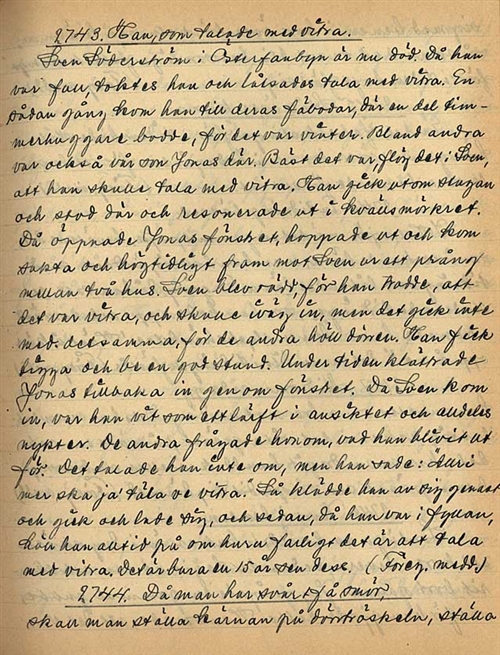 2743. Han, som talade med vitra.
Sven Söderström i Österfanbyn är nu död. Då han
var full, toktes han och låtsades tala med vitra. En
sådan gång kom han till deras fäbodar, där en del tim-
merhuggare bodde, för det var vinter. Bland andra
var också vår son Jonas där. Bäst det var, flög det i Sven,
att han skulle tala med vitra. Han gick utom stugan
och stod där och resonerade ut i kvällsmörkret.
Då öppnade Jonas fönstret, hoppade ut och kom
sakta och högtidligt fram mot Sven ur ett prång
mellan två hus. Sven blev rädd, för han trodde, att
det var vitra, och skulle iväg in, men det gick inte
med detsamma, för de andra höll dörren. Han fick
tigga och be en god stund. Under tiden klättrade
Jonas tillbaka in genom fönstret. Då Sven kom
in, var han vit som ett lärft i ansiktet och alldeles
nykter. De andra frågade honom, vad han blivit ut
för. Det talade han inte om, men han sade: "Alldri
mer ska ja' tåla ve vitra." Så klädde han av sig genast
och gick och lade sig, och sedan, då han var i fyllan,
höll han alltid på om huru farligt det är att tala
med vitra. Det är bara en 15 år sen dess. (Föreg. medd.)
2744. Då man har svårt få smör,
skall man ställa kärnan på dörrtröskeln, ställa